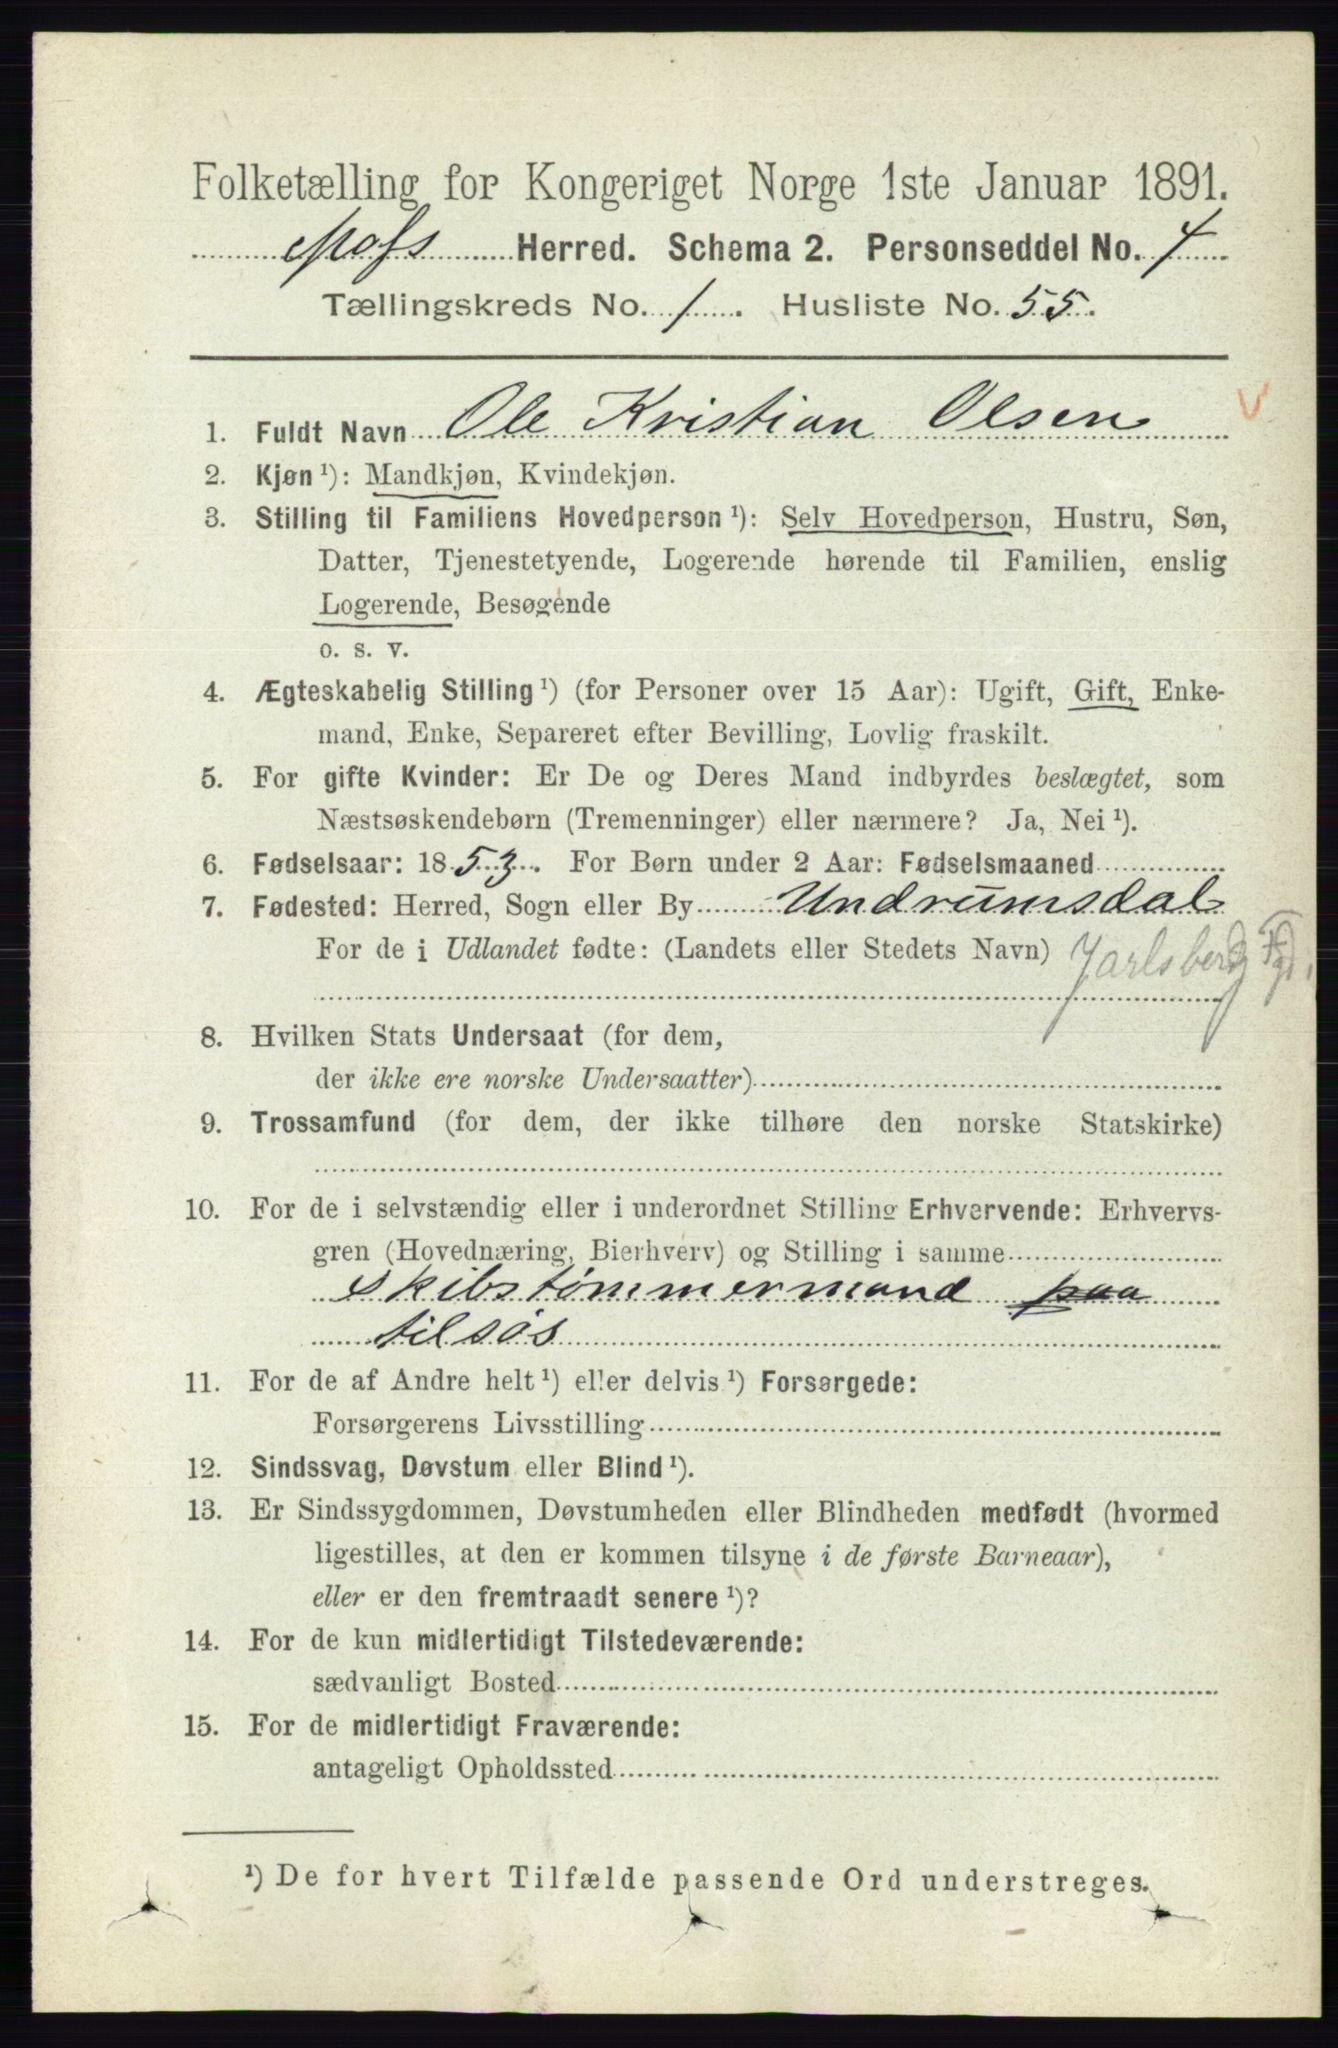 Folketælling for Kongeriget Norge 1ste Januar 1891.
Moss Herred. Schema 2. Personseddel No. 4
Tællingskreds No. 1. Husliste No. 55.
1. Fuldt Navn Ole Kristian Olsen v
2. Kjøn ¹): Mandkjøn, Kvindekjøn.
3. Stilling til Familiens Hovedperson ¹): Selv Hovedperson, Hustru, Søn,
Datter, Tjenestetyende, Logerende hørende til Familien, enslig
Logerende, Besøgende
o. s. v.
4. Ægteskabelig Stilling ¹) (for Personer over 15 Aar): Ugift, Gift, Enke-
mand, Enke, Separeret efter Bevilling, Lovlig fraskilt.
5. For gifte Kvinder: Er De og Deres Mand indbyrdes beslægtet, som
Næstsøskendebørn (Tremenninger) eller nærmere? Ja, Nei ¹).
6. Fødselsaar: 1853. For Børn under 2 Aar: Fødselsmaaned
7. Fødested: Herred, Sogn eller By Undrumsdal
For de i Udlandet fødte: (Landets eller Stedets Navn) Jarlsberg Fgd.
8. Hvilken Stats Undersaat (for dem,
der ikke ere norske Undersaatter)
9. Trossamfund (for dem, der ikke tilhøre den norske Statskirke)
10. For de i selvstændig eller i underordnet Stilling Erhvervende: Erhvervs-
gren (Hovednæring, Bierhverv) og Stilling i samme
Skibstømmermand paa
tilsøs
11. For de af Andre helt ¹) eller delvis ¹) Forsørgede:
Forsørgerens Livsstilling
12. Sindssvag, Døvstum eller Blind ¹).
13. Er Sindssygdommen, Døvstumheden eller Blindheden medfødt (hvormed
ligestilles, at den er kommen tilsyne i de første Barneaar),
eller er den fremtraadt senere ¹)?
14. For de kun midlertidigt Tilstedeværende:
sædvanligt Bosted
15. For de midlertidigt Fraværende:
antageligt Opholdssted
¹) De for hvert Tilfælde passende Ord understreges.